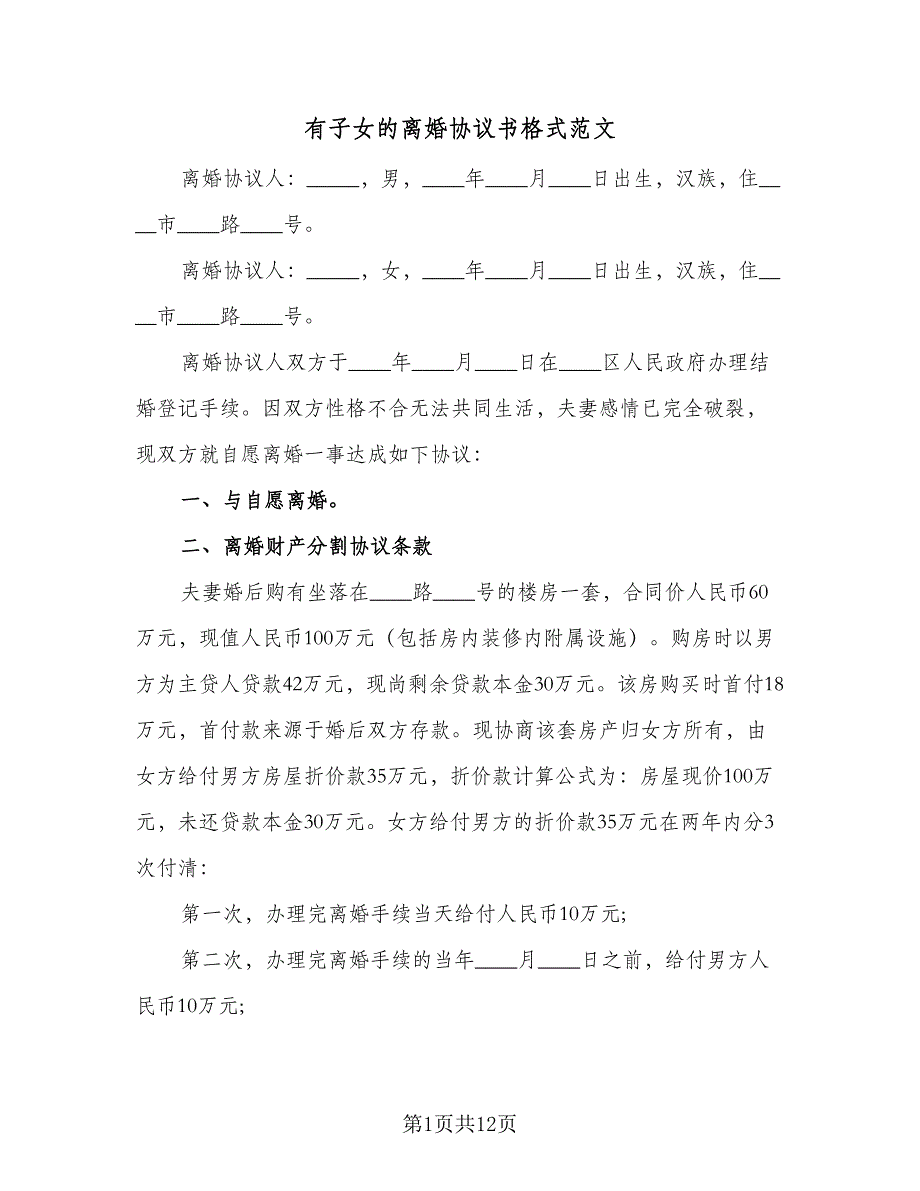 有子女的离婚协议书格式范文
离婚协议人：_____，男，____年____月____日出生，汉族，住__
__市____路____号。
离婚协议人：_____，女，____年____月____日出生，汉族，住__
__市____路____号。
离婚协议人双方于____年____月____日在____区人民政府办理结
婚登记手续。因双方性格不合无法共同生活，夫妻感情已完全破裂，
现双方就自愿离婚一事达成如下协议：
一、与自愿离婚。
二、离婚财产分割协议条款
夫妻婚后购有坐落在____路____号的楼房一套，合同价人民币60
万元，现值人民币100万元（包括房内装修内附属设施）。购房时以男
方为主贷人贷款42万元，现尚剩余贷款本金30万元。该房购买时首付18
万元，首付款来源于婚后双方存款。现协商该套房产归女方所有，由
女方给付男方房屋折价款35万元，折价款计算公式为：房屋现价100万
元，未还贷款本金30万元。女方给付男方的折价款35万元在两年内分3
次付清：
第一次，办理完离婚手续当天给付人民币10万元;
第二次，办理完离婚手续的当年____月____日之前，给付男方人
民币10万元;
第1页共12页